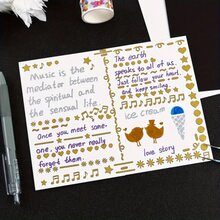 Music is the
mediator between
the spiritual and
the sensual life.
Once you meet some-
one, you never really
forget them.
The earth
speaks to all of us.
Just follow your heart.
and keep smiling.
ice cream
love story